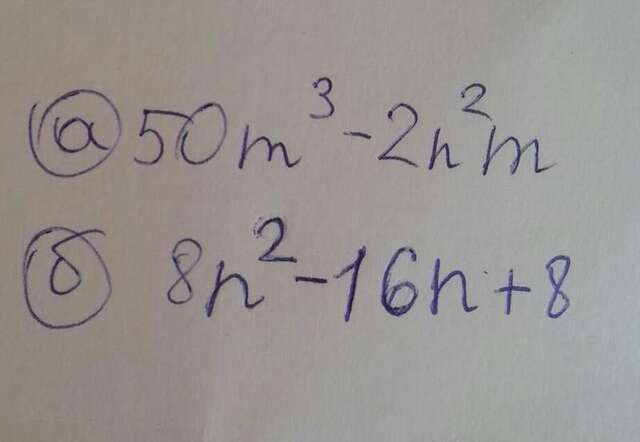 а 50m³-2n²m
б 8n²-16n+8